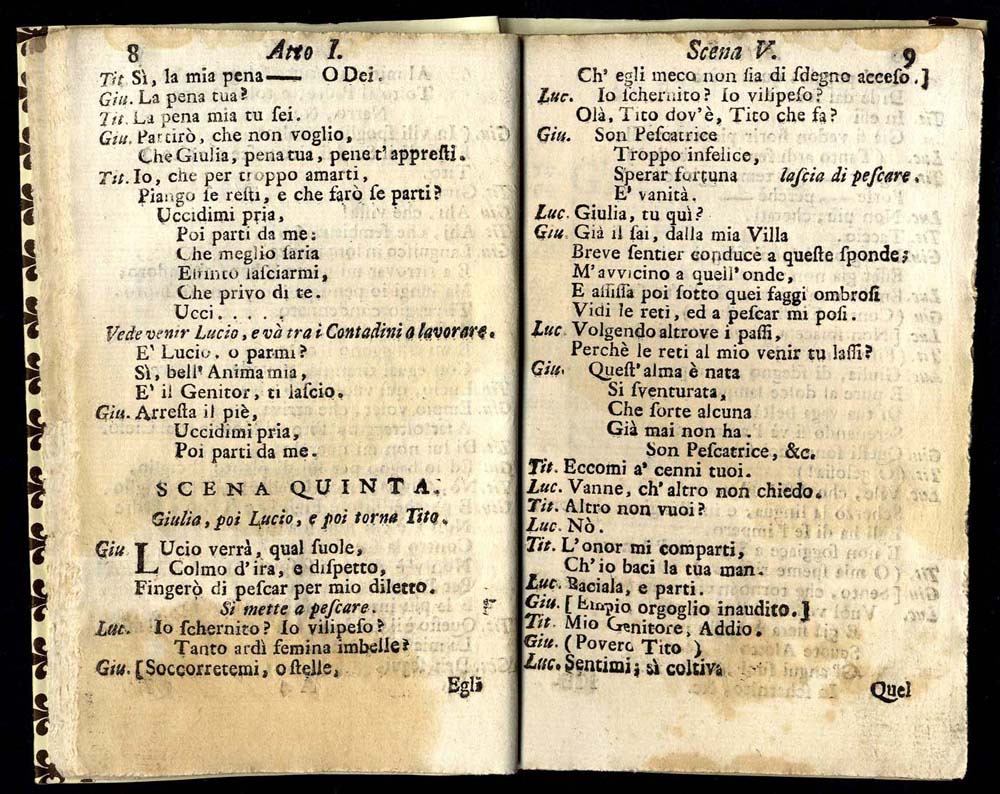 8 Atto I.
Tit Sì, la mia pena —— O Dei.
Giu. La pena tua?
Tit. La pena mia tu sei.
Giu. Partirò, che non voglio,
Che Giulia, pena tua, pene t'appresti.
Tit. Io, che per troppo amarti,
Piango se resti, e che farò se parti?
Uccidimi pria,
Poi parti da me:
Che meglio saria
Estinto lasciarmi,
Che privo di te.
Ucci. . . . .
Vede venir Lucio, e và tra i Contadini a lavorare.
E' Lucio, o parmi?
Sì, bell' Anima mia,
E' il Genitor, ti lascio.
Giu. Arresta il piè,
Uccidimi pria,
Poi parti da me.
SCENA QUINTA.
Giulia, poi Lucio, e poi torna Tito.
Giu LUcio verrà, qual suole,
Colmo d'ira, e dispetto,
Fingerò di pescar per mio diletto.
Si mette a pescare.
Luc. Io schernito? Io vilipeso?
Tanto ardì femina imbelle?
Giu. [Soccorretemi, o stelle,
Egli
Scena V. 9
Ch' egli meco non sia di sdegno acceso.]
Luc. Io schernito? Io vilipeso?
Olà, Tito dov'è, Tito che fa?
Giu. Son Pescatrice
Troppo infelice,
Sperar fortuna lascia di pescare.
E' vanità.
Luc. Giulia, tu quì?
Giu Già il sai, dalla mia Villa
Breve sentier conduce a queste sponde;
M'avvicino a quell'onde,
E assissa poi sotto quei faggi ombrosi
Vidi le reti, ed a pescar mi posi.
Luc Volgendo altrove i passi,
Perchè le reti al mio venir tu lassi?
Giu. Quest'alma è nata
Si sventurata,
Che sorte alcuna
Già mai non ha.
Son Pescatrice, &c.
Tit. Eccomi a' cenni tuoi.
Luc. Vanne, ch'altro non chiedo.
Tit. Altro non vuoi?
Luc. Nò.
Tit. L'onor mi comparti,
Ch'io baci la tua man.
Luc. Baciala, e parti.
Giu. [Empio orgoglio inaudito.]
Tit. Mio Genitore, Addio.
Giu. (Povero Tito )
Luc. Sentimi; sì coltiva
Quel